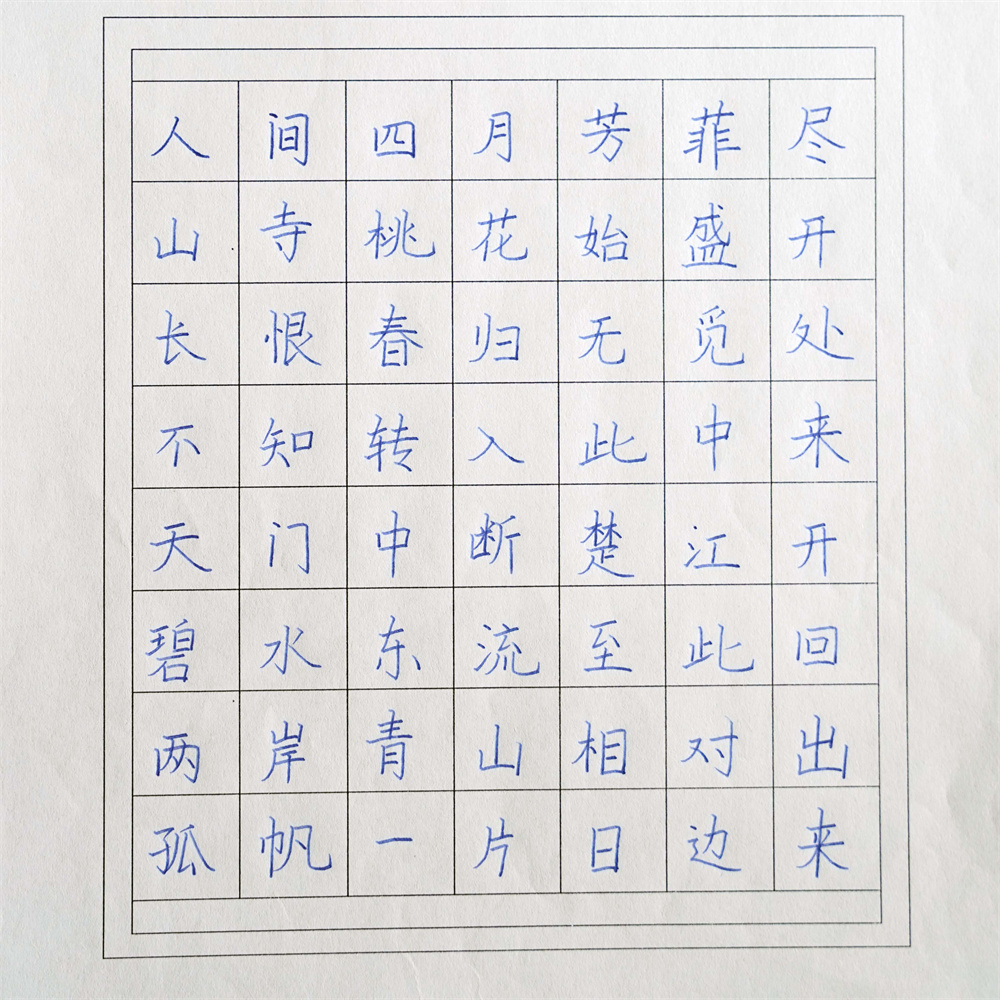 人间四月芳菲尽
山寺桃花始盛开
长恨春归无觅处
不知转入此中来
天门中断楚江开
碧水东流至此回
两岸青山相对出
孤帆一片日边来